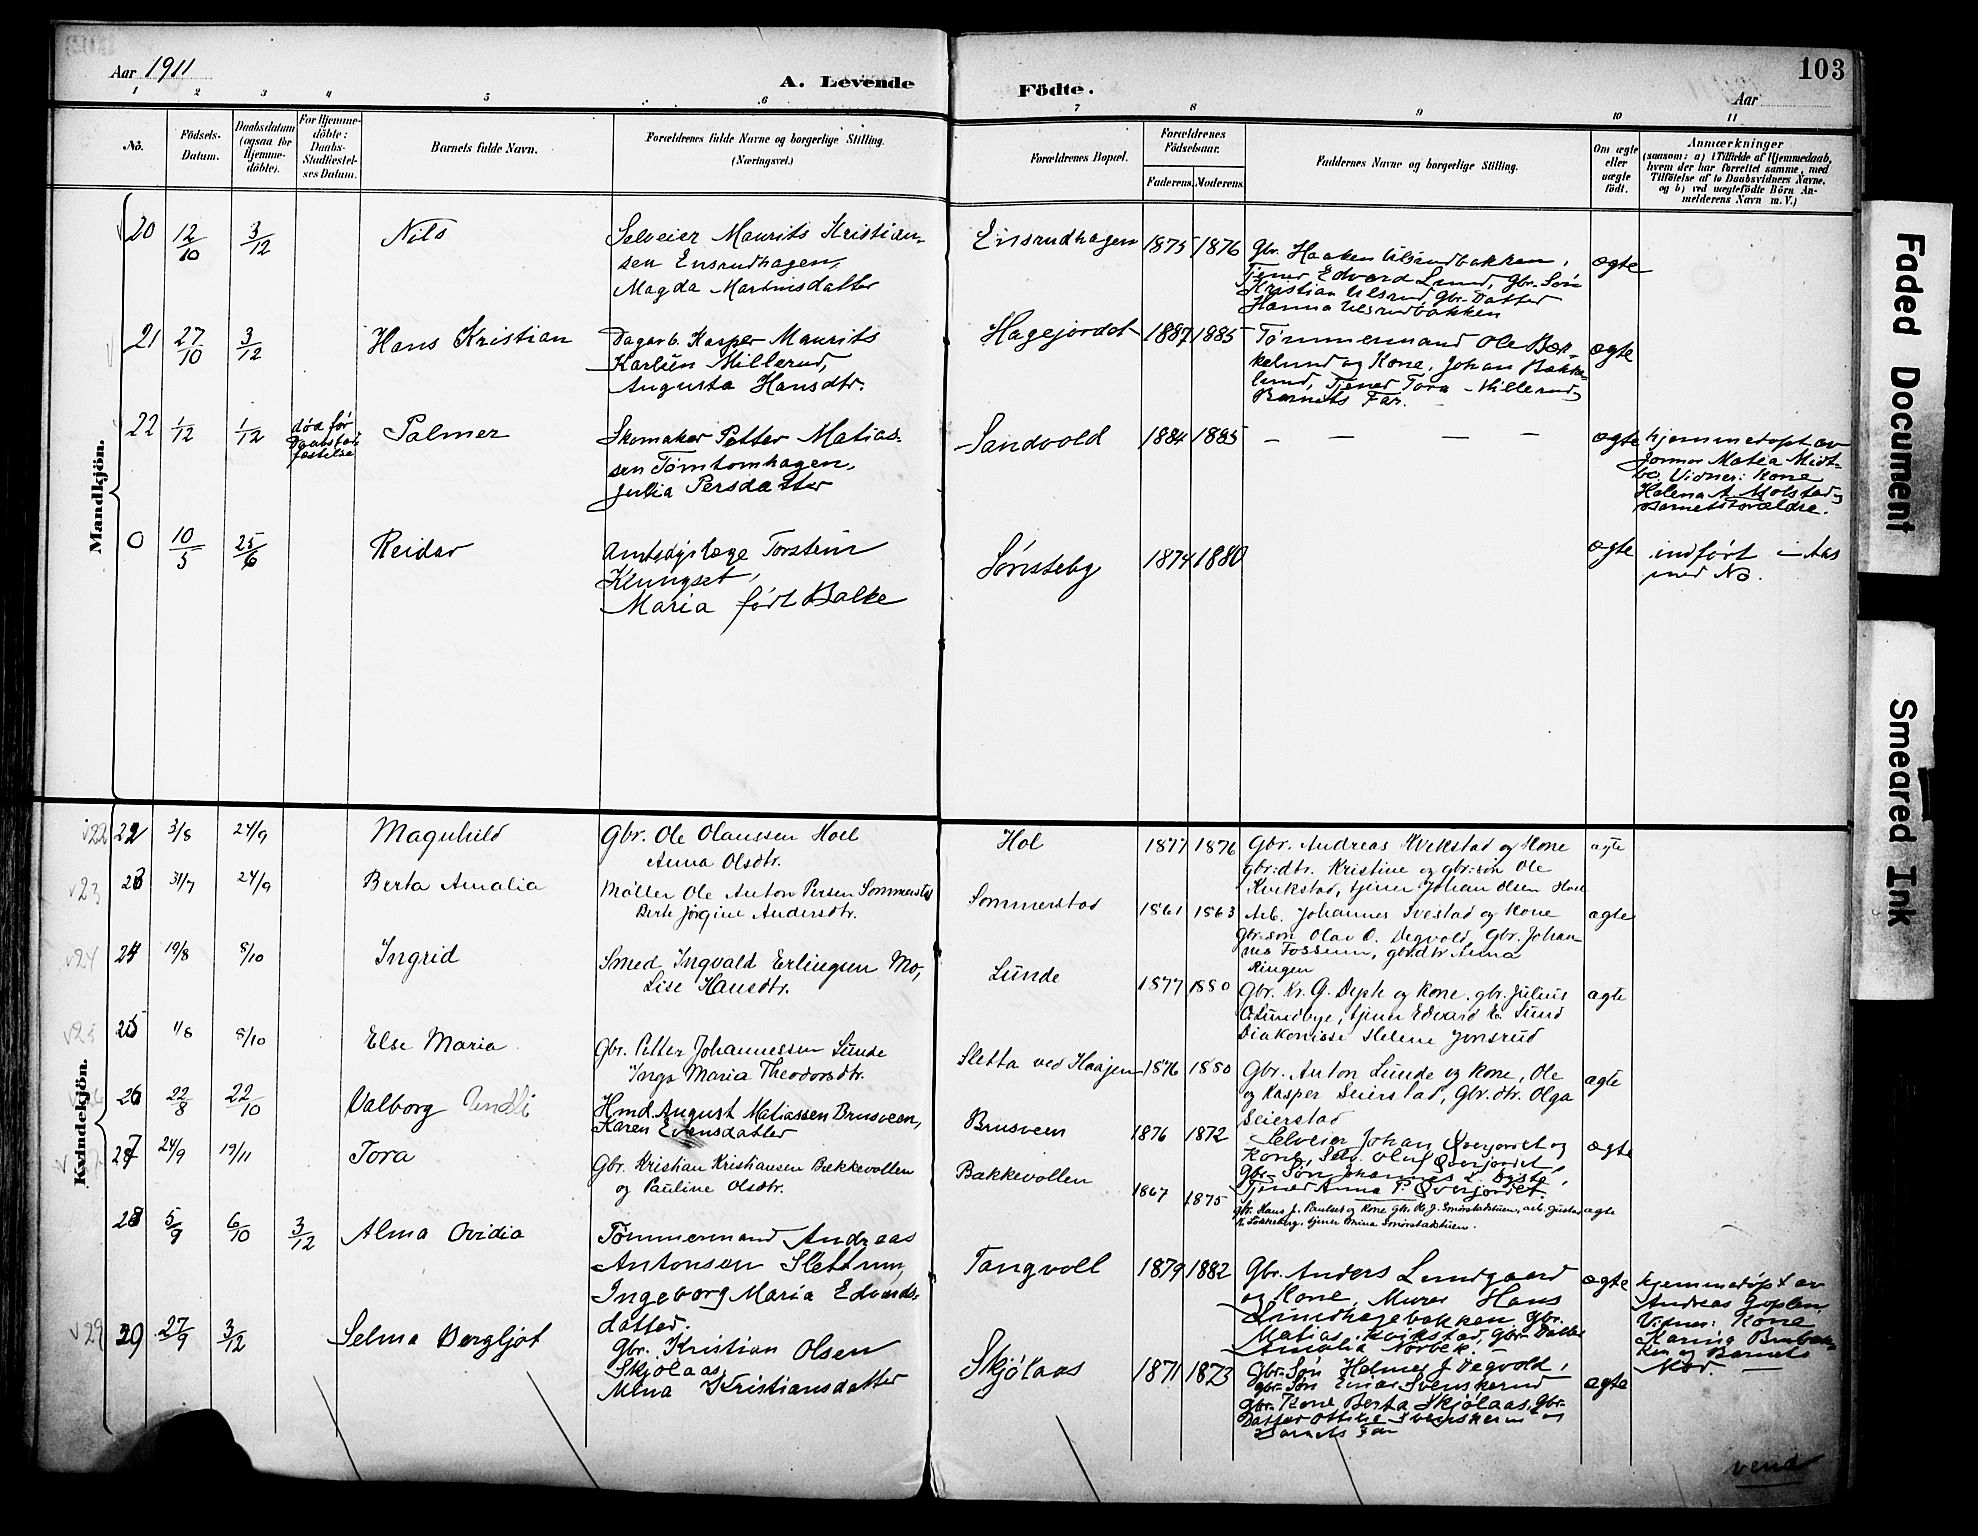 Aar 1911
A. Levende
Födte.
103
Aar
1 2 3 4 5 6 7 8 9 10 11
No.
Födsels-
Datum.
Daabsdatum
(ogsaa for
Hjemme-
döbte).
For Hjemme-
döbte:
Daabs-
Stadfæstel-
ses Datum.
Barnets fulde Navn.
Forældrenes fulde Navne og borgerlige Stilling.
(Næringsvei.)
Forældrenes Bopæl.
Forældrenes
Födselsaar.
Faderens. Moderens.
Faddernes Navne og borgerlige Stilling.
Om ægte
eller
uægte
födt.
Anmærkninger
(saasom: a) i Tilfælde af Hjemmedaab,
hvem der har forrettet samme, med
Tilföielse af to Daabsvidners Navne,
og b) ved uægtefödte Börn An-
melderens Navn m. V.)
Mandkjön.
20 12/10 3/12 Nils
Selveier Maurits Kristian-
sen Ensrudhagen,
Magda Martinsdatter
Ensrudhagen 1875 1876
Gbr. Haaken Ulsrudbakken,
Tjener Edvard Lund, Gbr. Søn
Kristian Ulsrud, Gbr. Datter
Hanna Ulsrudbakken
ægte
21 27/10 3/12 Hans Kristian
Dagarb. Kasper Maurits
Karlsen Millerud,
Augusta Hansdtr.
Hagejordet 1887 1885
Tømmermand Ole Bæk-
kelund og Kone, Johan Bække-
lund, Tjener Tora Hillerud,
Barnets Far.
ægte
22 1/12 1/12 død før
Daabstad-
fæstelse
Palmer
Skomaker Petter Matias-
sen Tømtomhagen,
Julia Persdatter
Sandvold 1884 1885 — — — —
ægte
hjemmedøpt av
Jormor Matea Midt-
bø. Vidner: Kone
Helena A. Molstad,
Barnets Forældre.
0 10/5 25/6 Reidar
Amtsdyrlæge Torstein
Klungset,
Maria født Balke
Sørnsteby 1874 1880
ægte
indført i Aas
med No.
Kvindekjön.
v22 22 3/8 24/9 Magnhild
Gbr. Ole Olaussen Hoel
Anna Olsdtr.
Hol 1877 1876
Gbr. Andreas Kvikstad og Kone
gbr.dtr. Kristine og gbr.søn Ole
Kvikstad, tjener Johan Olsen Hoel
ægte
v23 23 31/7 24/9 Berta Amalia
Møller Ole Anton Persen Sommerstad
Berte Jørgine Andersdtr.
Sommerstad 1861 1863
Arb. Johannes Ivestad og Kone
gbr.søn Olav O. Degvold, Gbr. Johan-
nes Fossum, gbr.dtr Anna
Ringen
ægte
v24 24 19/8 8/10 Ingrid
Smed Ingvald Erlingsen Mo,
Lise Hansdtr.
Lunde 1877 1880
Gbr. Kr. G. Deph og Kone, gbr. Julius
Ølundbye, tjener Edvard E. Lund
Diakonisse Helene Jønsrud
ægte
v25 25 1/8 8/10 Else Maria
Gbr. Petter Johannessen Lunde
Inga Maria Theodorsdtr.
Sletta ved Haajen 1876 1880
Gbr. Anton Lunde og Kone, Ole
og Kasper Seierstad, Gbr. dtr. Olga
Seierstad
ægte
26 22/8 22/10 Valborg
Hmd. August Matiassen Brusveen,
Karen Evensdatter
Brusveen 1876 1872
Selveier Johan Øverjordet og
Kone, Selv. Oluf Øverjordet,
Gbr. Søn Johannes L. Dyste,
Tjener Anna P. Øverjordet.
ægte
27 24/9 19/11 Tora
Gbr. Kristian Kristiansen Bakkevollen
og Pauline Olsdtr.
Bakkevollen 1867 1875
gbr. Hans J. Paulset og Kone gbr. Ole J. Smørstadstuen, arb. Gustav
K. Løkkeberg, tjener Smørstadstuen.
ægte
28 5/9 6/10 3/12 Alma Ovidia
Tømmermand Andreas
Antonsen Slettum,
Ingeborg Maria Edvards-
datter.
Tangvoll 1879 1882
Gbr. Anders Lundgaard
og Kone, Murer Hans
Lundhagebakken, Gbr.
Matias Kvikstad, Gbr. Datter
Amalia Norbek. —
ægte
hjemmedøpt av
Andreas Goplen
Vidner: Kone
Karina Burbak-
ken og Barnets
Mor. —
v29 29 27/9 3/12 Selma Bergljot
Gbr. Kristian Olsen
Skjølaas,
Mina Kristiansdatter
Skjølaas 1871 1873
Gbr. Søn Helmer J. Degvold,
gbr. Søn Einar Svenskerud
Gbr. Kone Berta Skjølaas, Gbr.
Datter Ottilie Svenskerud og
Barnets Far
ægte
vend
Faded Document
Smeared Ink